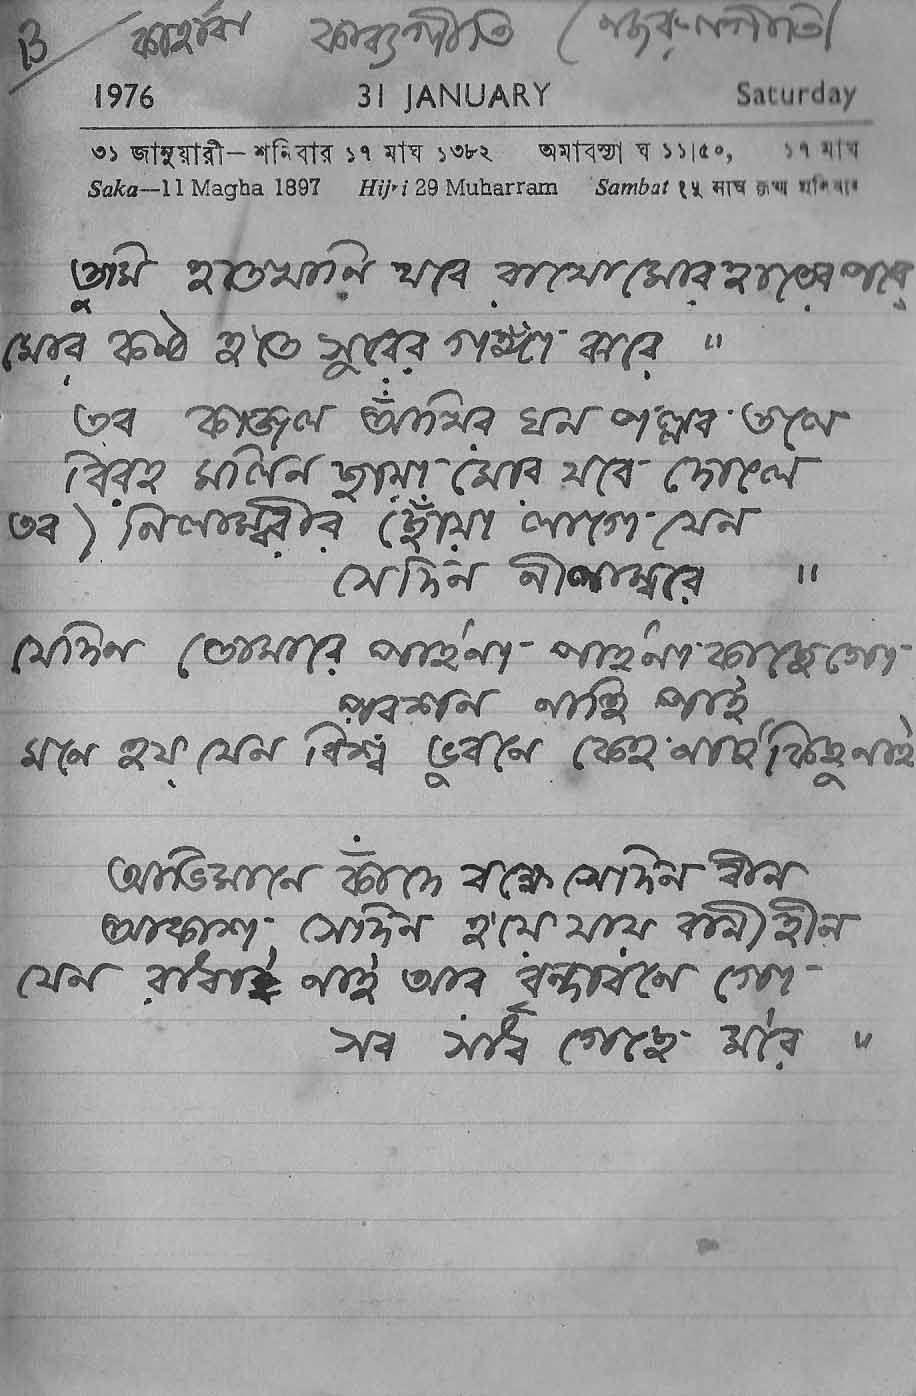 B কাহারবা কাব্যগীতি (নজরুলগীতি)
1976 31 JANUARY Saturday
৩১ জানুয়ারী—শনিবার ১৭ মাঘ ১৩৮২ অমাবস্যা ঘ ১১।৫০, ১৭ মাঘ
Saka—11 Magha 1897 Hijri 29 Muharram Sambat १५ माघ कृष्ण शनिवार
তুমি হাতখানি যবে রাখো মোর হাতের পরে
মোর কণ্ঠ হ'তে সুরের গঙ্গা ঝরে "
তব কাজল আঁখির ঘন পল্লব তলে
বিরহ মলিন ছায়া মোর যবে দোলে
তব) নিলাম্বরীর ছোঁয়া লাগে যেন
সেদিন নীলাম্বরে "
যেদিন তোমারে পাইনা পাইনা কাছে গো
পরশন নাহি পাই
মনে হয় যেন বিশ্ব ভুবনে কেহ নাই কিছু নাই
অভিমানে কাঁদে বক্ষে সেদিন বীন
আকাশ সেদিন হ'য়ে যায় বানী হীন
যেন রাধা নাই আর বৃন্দাবনে গো
সব সাধ গেছে ম'রে "